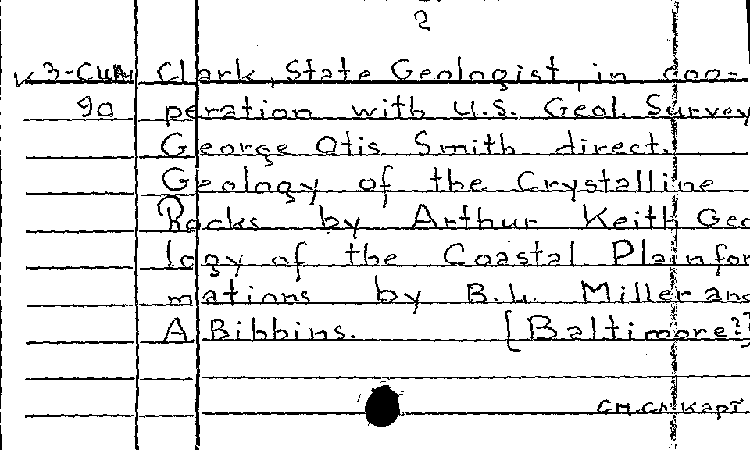 2
Clark, State Geologist, in coo-
90 peration with U.S. Geol. Survey
George Otis Smith direct.
Geology of the Crystalline
Rocks by Arthur Keith Geo
logy of the Coastal Plain for
mations by B.L. Miller and
A Bibbins. [Baltimore?]